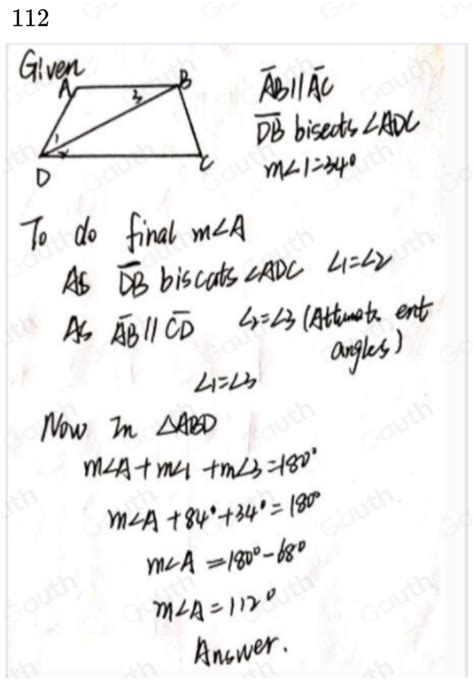 112
Given
A B
3
1
D C
A̅B̅ || A̅C̅
D̅B̅ bisects ∠ADC
m∠1=34°
To do final m∠A
As D̅B̅ biscats ∠ADC ∠1=∠2
As A̅B̅ || C̅D̅ ∠2=∠3 (
angles)
∠1=∠3
Now In △ABD
m∠A+m∠1 +m∠3=180°
m∠A +84°+34°=180°
m∠A =180°-68°
m∠A=112°
Answer.